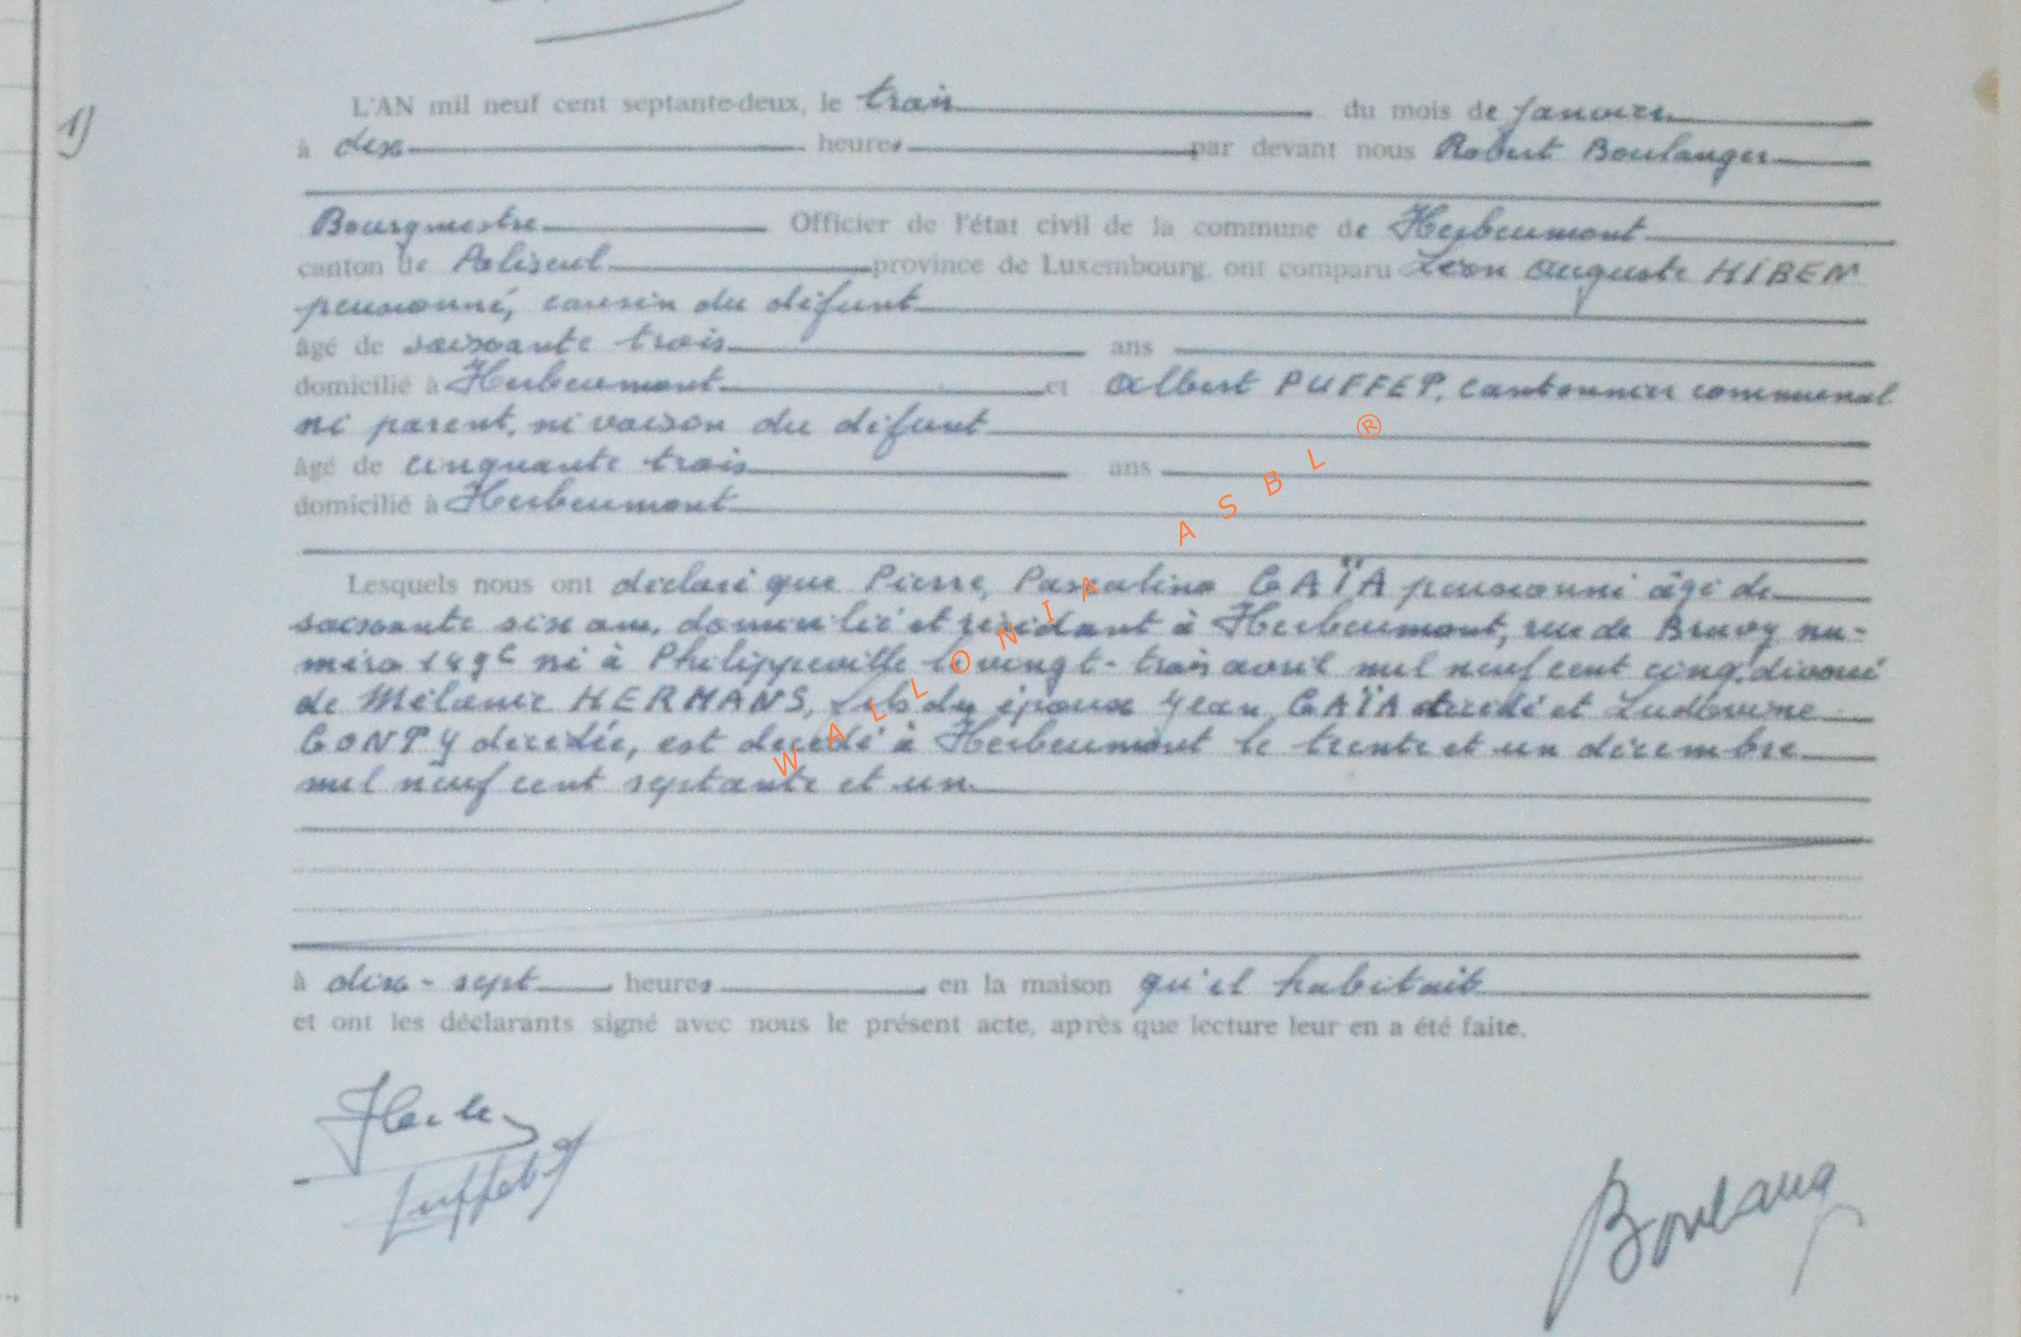 1)
L'AN mil neuf cent septante-deux, le trois du mois de Janvier
à dix heures par devant nous Robert Boulanger
Bourgmestre Officier de l'état civil de la commune de Herbeumont
canton de Paliseul province de Luxembourg, ont comparu Léon Auguste HIBEN
pensionné, cousin du défunt
âgé de soixante trois ans
domicilié à Herbeumont et Albert PUFFET, cantonnier communal
ni parent, ni voison du défunt
âgé de cinquante trois ans
domicilié à Herbeumont
Lesquels nous ont déclaré que Pierre, Pascalino GAÏA pensionné âgé de
soixante six ans, domicilié et résidant à Herbeumont, rue de Bravy nu-
méro 149c né à Philippeville le vingt-trois avril mil neuf cent cinq, divorcé
de Mélanie HERMANS, fils des époux Jean GAÏA décédé et Ludovine
CONTY décédée, est décédé à Herbeumont le trente et un décembre
mil neuf cent septante et un.
à dix-sept heures en la maison qu'il habitait
et ont les déclarants signé avec nous le présent acte, après que lecture leur en a été faite.
Puffet
Boulang
WALLONIA ASBL ®